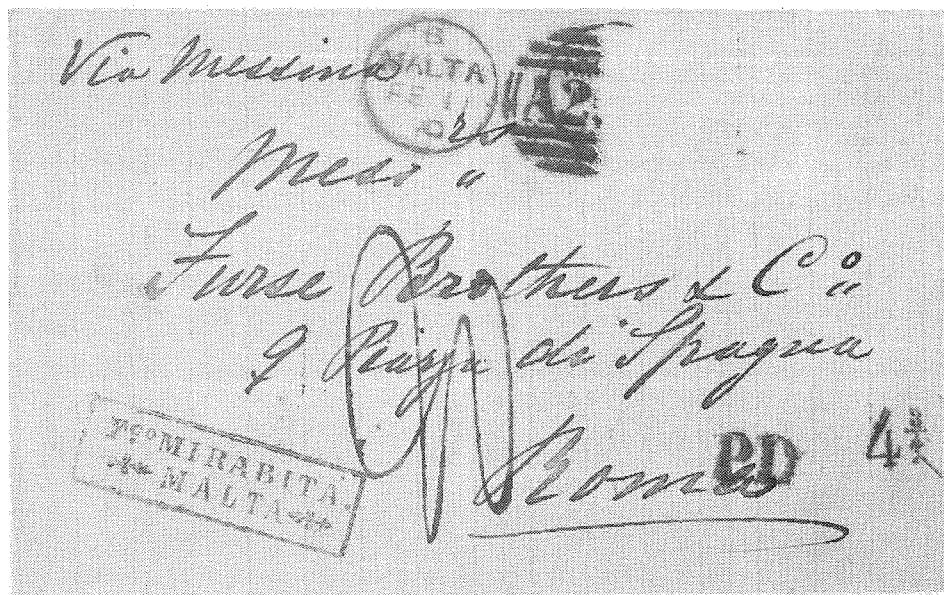 Via Messina
MALTA
FE 1
A 2
Mess rs "
Furse Brothers & Co
9 Piazza di Spagna
Roma
PD
4
Fco MIRABITA
MALTA